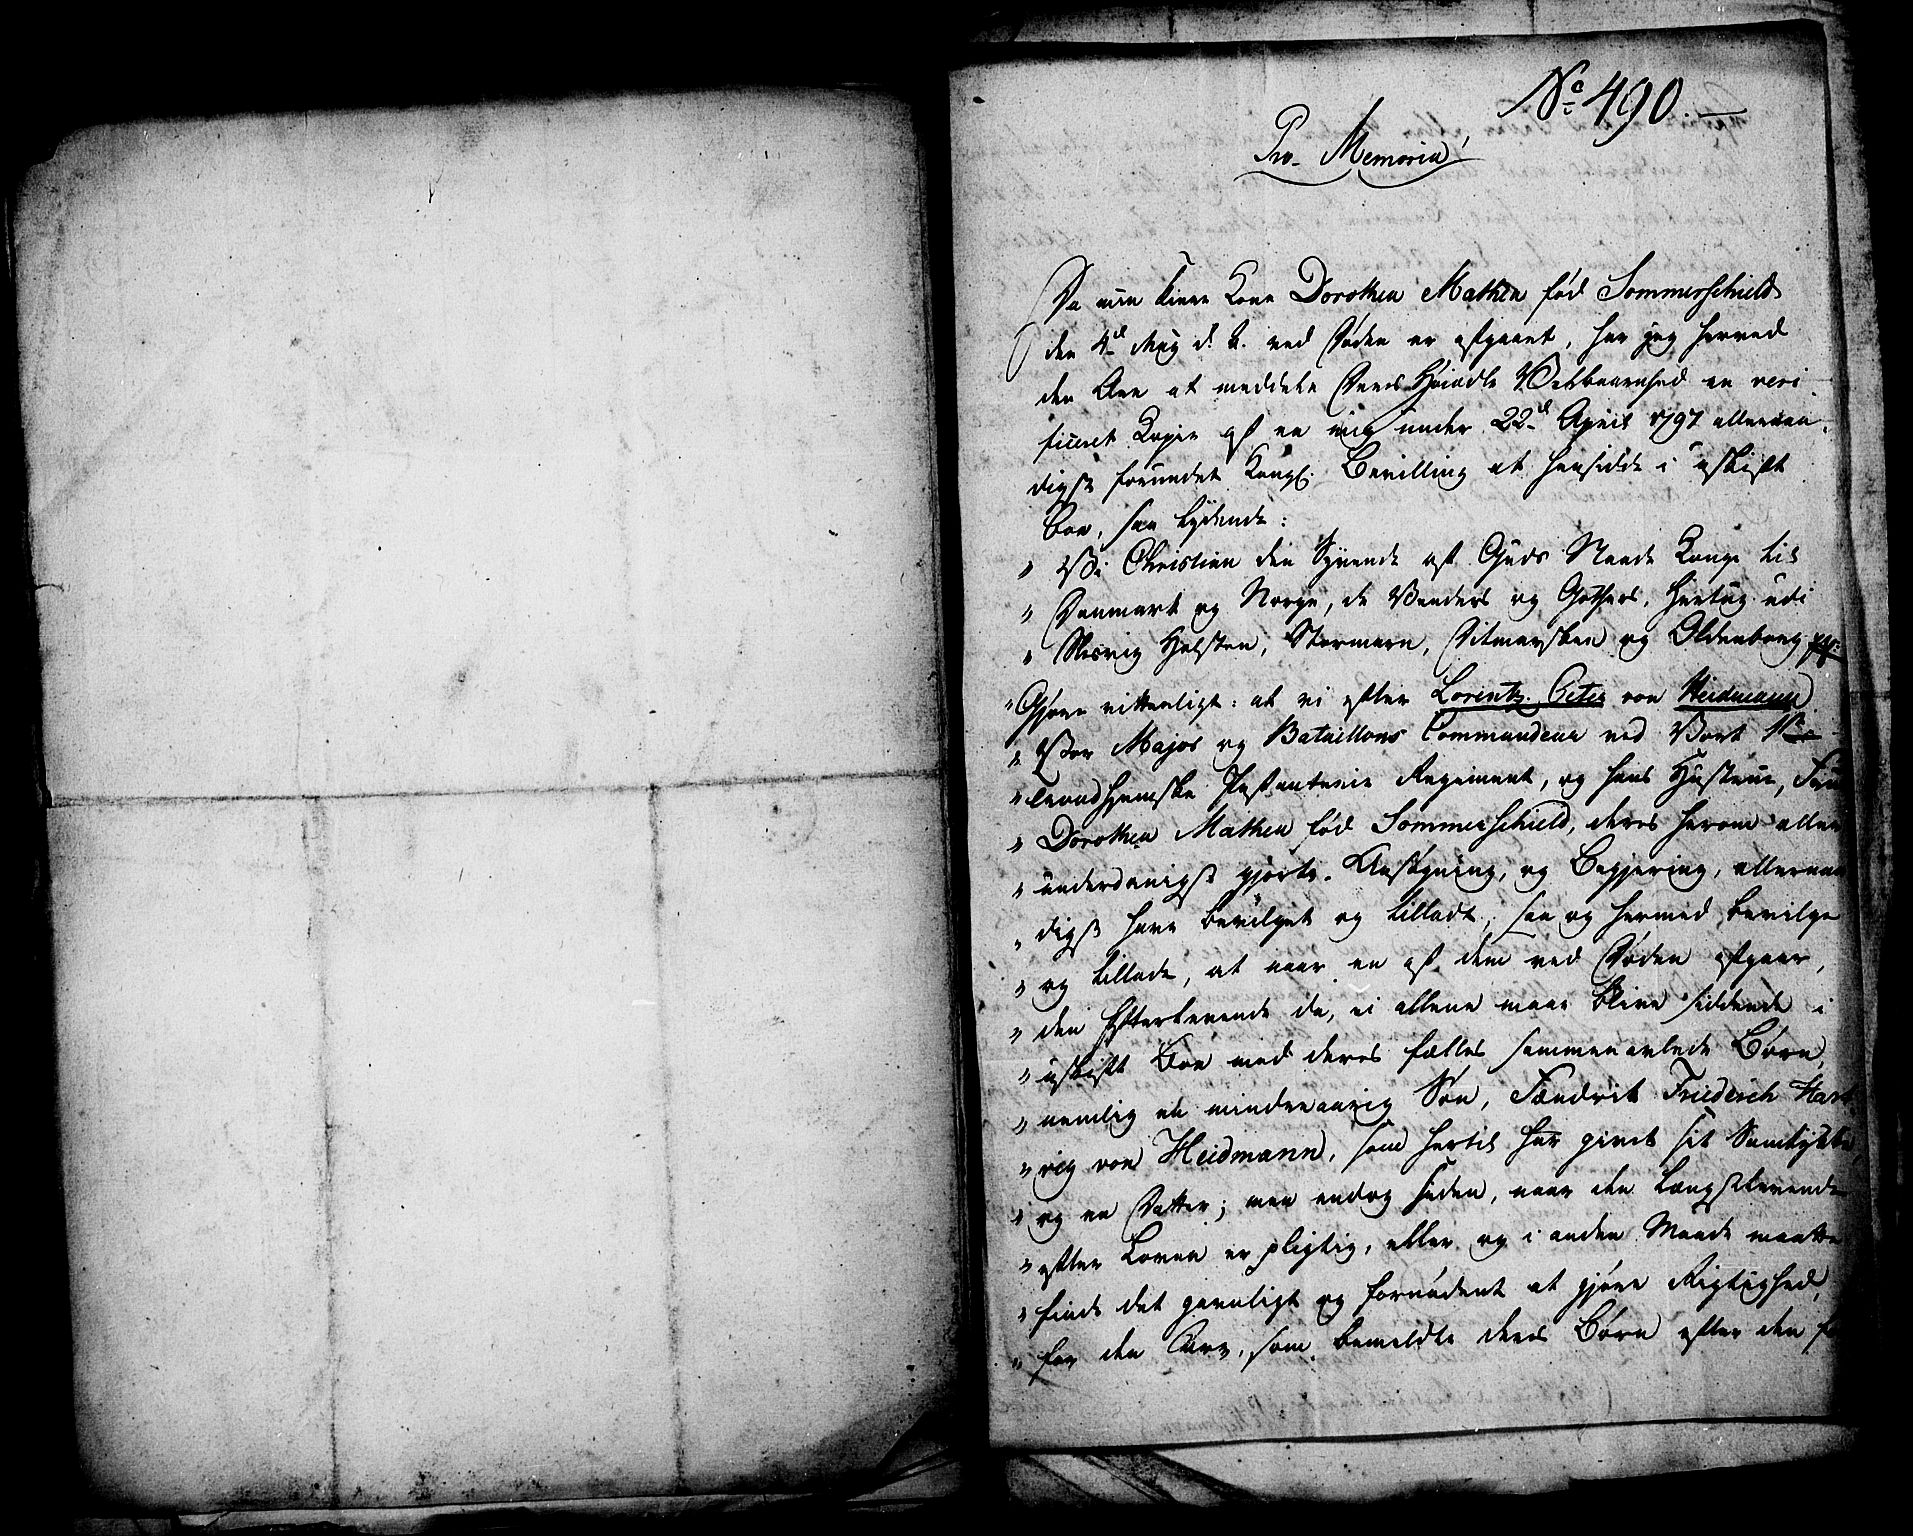 No 490.
Pro Memoria!
Da min kiere Kone Dorothea Mathea fød Sommerschield
den 4de May d. A. ved Døden er afgaaet, har jeg herved
den Ære at meddele Deres Høiædle Velbaarenhed en veri
ficeret Copie af en mig under 22de April 1797 allernaa-
digst forundt Kongl. Bevilling at hensidde i uskiftt
Boe, saa lydende:
" Vi Christian den Syvende af Guds Naade Konge til
" Danmark og Norge, de Venders og Gothers, Hertug udi
" Slesvig Holsten, Stormarn, Ditmarsken og Oldenborg
" Giøre vitterligt: at vi efter Lorentz Peter von Heidmann
" Vor Major og Bataillons Commandeur ved Vort
" Trondhjemske Infanterie Regiment, og hans Hustrue, Frue
" Dorothea Mathea fød Sommerschield, deres herom aller
" underdanigst gjorte Ansøgning, og Begjering, allernaa
" digst have bevilget og tilladt, saa og hermed bevilge
" og tillade, at naar en af dem ved Døden afgaar,
" den Efterlevende da, ei allene maae blive siddende i
" uskiftt Boe med deres fælles sammenavlede Børn,
" nemlig en mindreaarig Søn, Fændrik Friderich Hart
" vig von Heidmann, som hertil har givet sit Samtykke,
" og en Datter; men endog siden, naar den Længstlevende
" efter Loven er pligtig, eller og i anden Maade maatte
" finde det gavnligt og fornødent at gjøre Rigtighed,
" for den Arv, som bemeldte deres Børn efter den